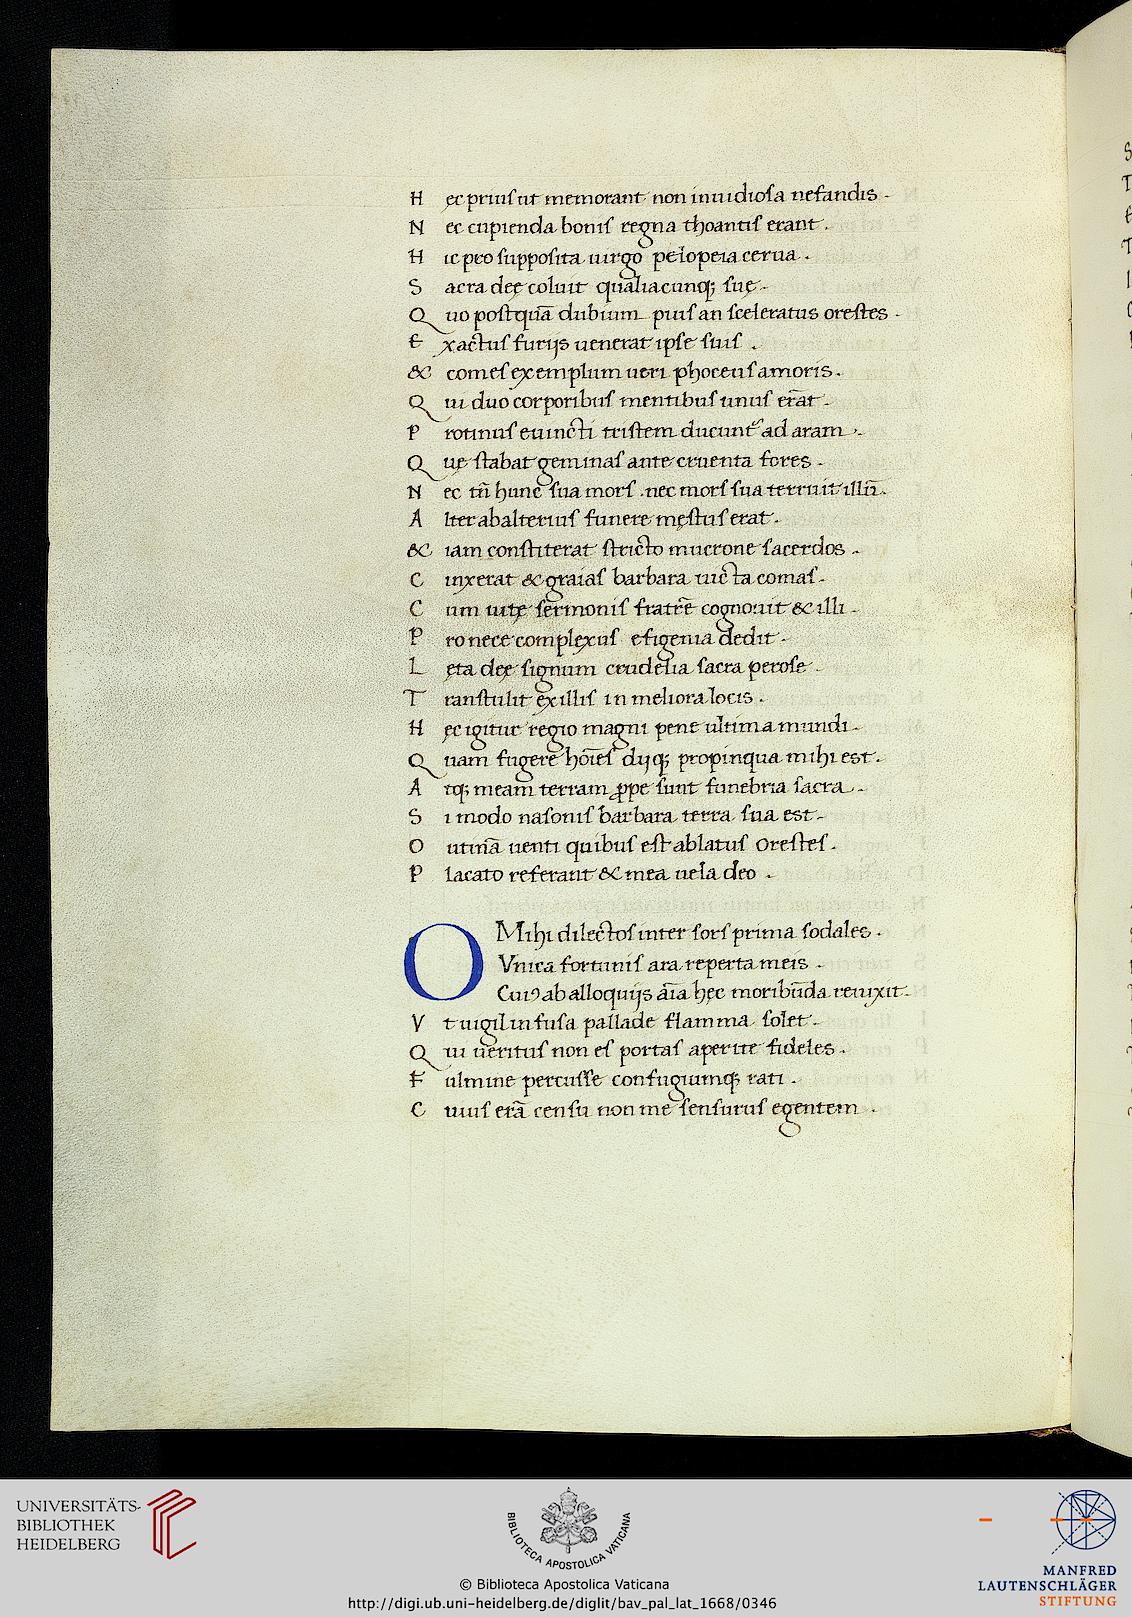 H ec priuſ ut memorant non inuidioſa nefandis .
N ec cupienda boniſ regna thoantiſ erant .
H ic pro ſuppoſita uirgo pelopeia cerua .
S acra deę coluit qualiacunq; ſuę .
Q uo poſtquā dubium piuſ an ſceleratus oreſtes .
E xactuſ furijſ uenerat ipſe ſuiſ .
& comeſ exemplum ueri phoceuſ amoris .
Q ui duo corporibuſ mentibuſ unuſ erāt .
P rotinuſ euincti triſtem ducunt᷑ ad aram .
Q uę ſtabat geminaſ ante cruenta fores .
N ec tn̄ hunc ſua morſ . nec morſ ſua terruit illū .
A lter ab alteriuſ funere męſtuſ erat .
& iam conſtiterat ſtricto mucrone ſacerdos .
C inxerat & graiaſ barbara uicta comaſ .
C um uitę ſermoniſ fratrē cognouit & illi .
P ro nece complexuſ efigenia dedit .
L ęta deę ſignum crudelia ſacra peroſe .
T ranſtulit ex illiſ in meliora locis .
H ec igitur regio magni pene ultima mundi .
Q uam fugere hoīeſ dijq; propinqua mihi est .
A tq; meam terram ꝓpe ſunt funebria ſacra .
S i modo naſoniſ barbara terra ſua est .
O utinā uenti quibuſ eſt ablatuſ Oreſteſ .
P lacato referant & mea uela deo .
O Mihi dilectoſ inter ſorſ prima ſodales .
Vnica fortuniſ ara reperta meis .
Cuiꝰ ab alloquijs aīa hęc moribūda reuixit .
V t uigil infuſa pallade flamma ſolet .
Q ui uerituſ non eſ portaſ aperire fideles .
F ulmine percuſſe confugiumq; rati .
C uiuſ erā cenſu non me ſenſuruſ egentem .
UNIVERSITÄTS-
BIBLIOTHEK
HEIDELBERG
BIBLIOTECA APOSTOLICA VATICANA
MANFRED
LAUTENSCHLÄGER
STIFTUNG
© Biblioteca Apostolica Vaticana
http://digi.ub.uni-heidelberg.de/diglit/bav_pal_lat_1668/0346